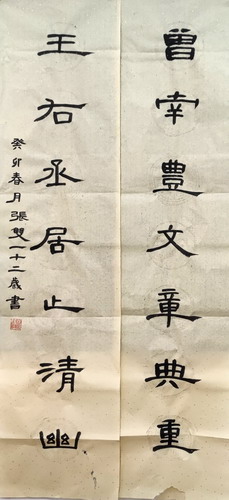 曾南豐文章典重
王右丞居止清幽
癸卯春月張雙一十二歲書